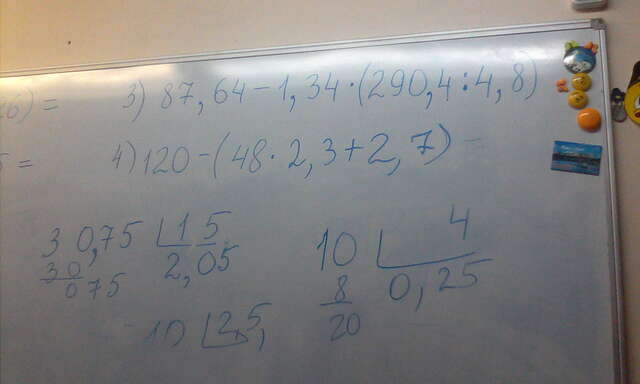 26) =
3) 87,64-1,34·(290,4:4,8)
5 =
4) 120-(48·2,3+2,7) =
30,75 15
30 2,05
075
10 4
8 0,25
20
10 2,5,